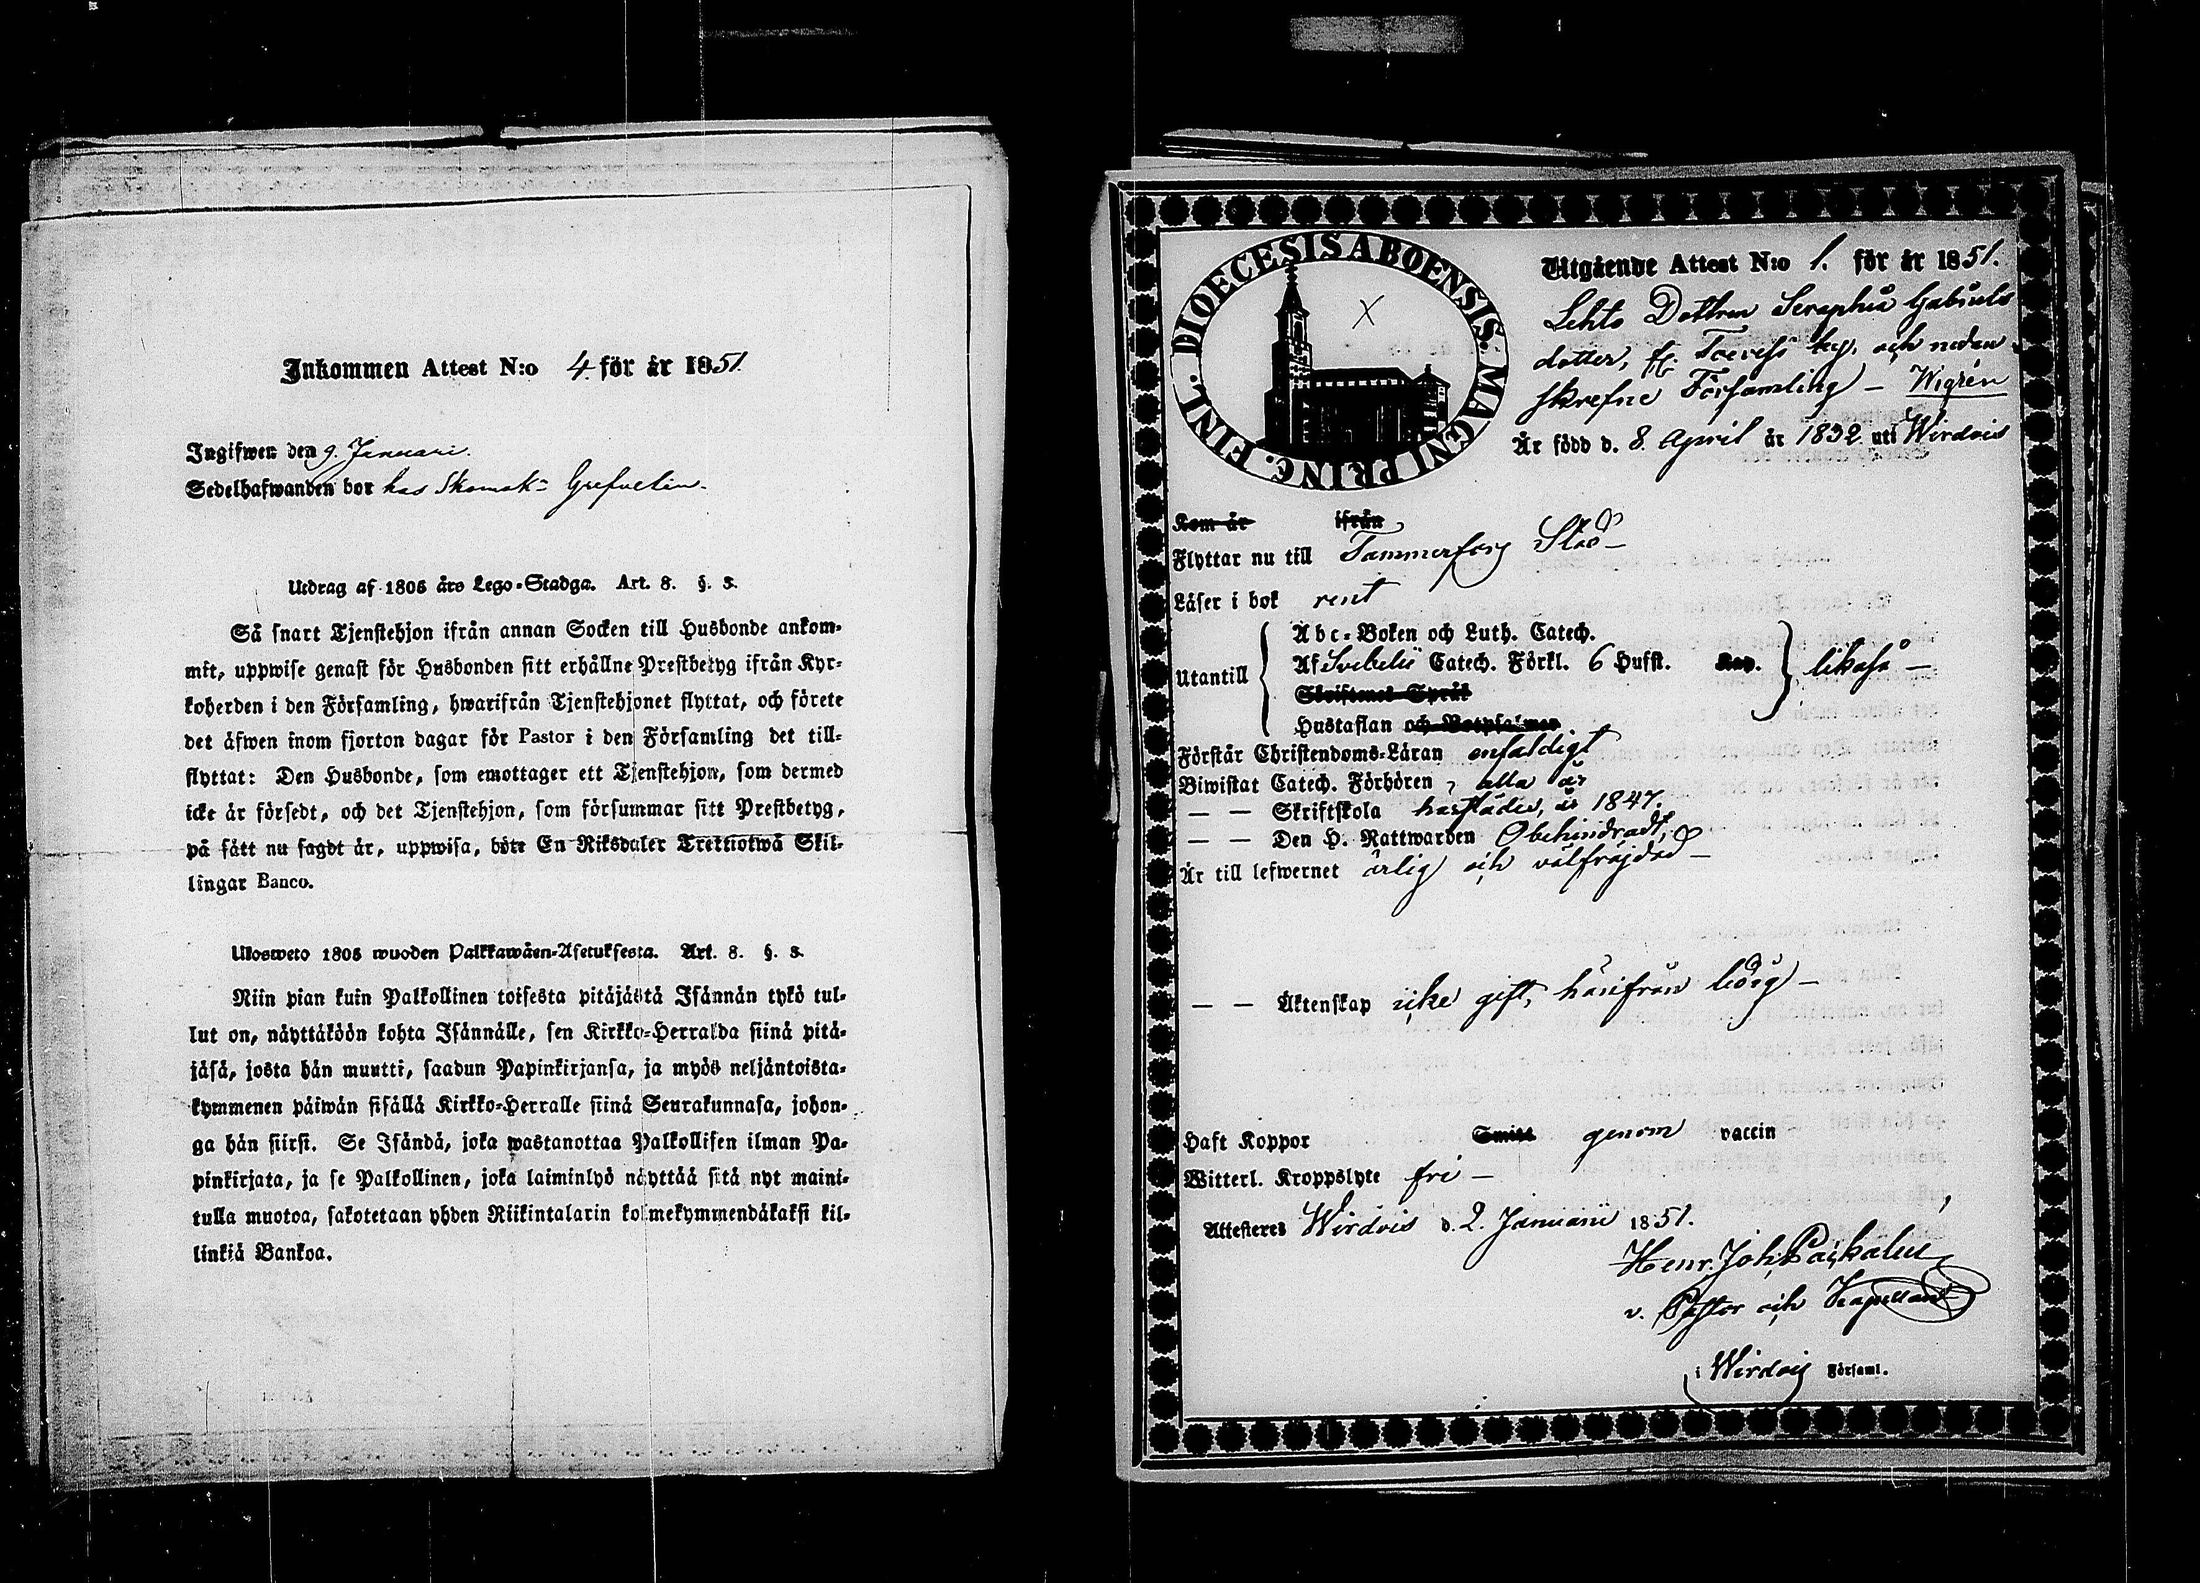 Inkommen Attest N:o 4. för år 1851.
Ingifwen den 9. Januari.
Sedelhafwanden bor hos Skomak= Grefvelin.
Utdrag af 1805 års Lego-Stadga. Art. 8. §. 3.
Så snart Tjenstehjon ifrån annan Socken till Husbonde ankom-
mit, uppwise genast för Husbonden sitt erhållne Prestbetyg ifrån Kyr-
koherden i den Församling, hwarifrån Tjenstehjonet flyttat, och förete
det äfwen inom fjorton dagar för Pastor i den Församling det till-
flyttat: Den Husbonde, som emottager ett Tjenstehjon, som dermed
icke är försedt, och det Tjenstehjon, som försummar sitt Prestbetyg,
på sätt nu sagdt är, uppwisa, böte En Riksdaler Trettiotwå Skil-
lingar Banco.
Ulosweto 1805 wuoden Palkkawäen-Asetuksesta. Art. 8. §. 3.
Niin pian kuin Palkollinen toisesta pitäjästä Isännän tykö tul-
lut on, näyttäköön kohta Isännälle, sen Kirkko-Herralda siinä pitä-
jäsä, josta hän muutti, saadun Papinkirjansa, ja myös neljäntoista-
kymmenen päiwän sisällä Kirkko-Herralle siinä Seurakunnasa, johon-
ga hän siirsi. Se Isändä, joka wastanottaa Palkollisen ilman Pa-
pinkirjata, ja se Palkollinen, joka laiminlyö näyttää sitä nyt maini-
tulla muotoa, sakotetaan yhden Riikintalarin kolmekymmendäkaksi kil-
linkiä Bankoa.
DIOECESIS ABOENSIS. MAGNI PRINC. FINL.
X
Utgående Attest N:o 1. för år 1851.
Lehto Dottren Seraphia Gabriels
dotter, fr. by, och nedan
skrefne Församling – Wigrén
Är född d. 8. April år 1832. uti Wirdois
Kom år ifrån
Flyttar nu till Tammerfors Stad –
Läser i bok rent
Utantill
Abc-Boken och Luth. Catech.
Af Svebelii Catech. Förkl. 6 Hufst. Kap. likaså –
Skriftenes Språk
Hustaflan och Botpsalmer
Förstår Christendoms-Läran enfaldigt
Biwistat Catech. Förhören, alla år
— — Skriftskola härstädes, år 1847.
— — Den H. Nattwarden Obehindradt,
Är till lefwernet ärlig och välfräjdad –
— — Äktenskap icke gift, härifrån ledig –
Haft Koppor Smitt genom vaccin
Witterl. Kroppslyte fri –
Attesteres Wirdois d. 2. Januarii 1851.
Henr. Joh.
v. Pastor och Kapellan
i Wirdois Församl.